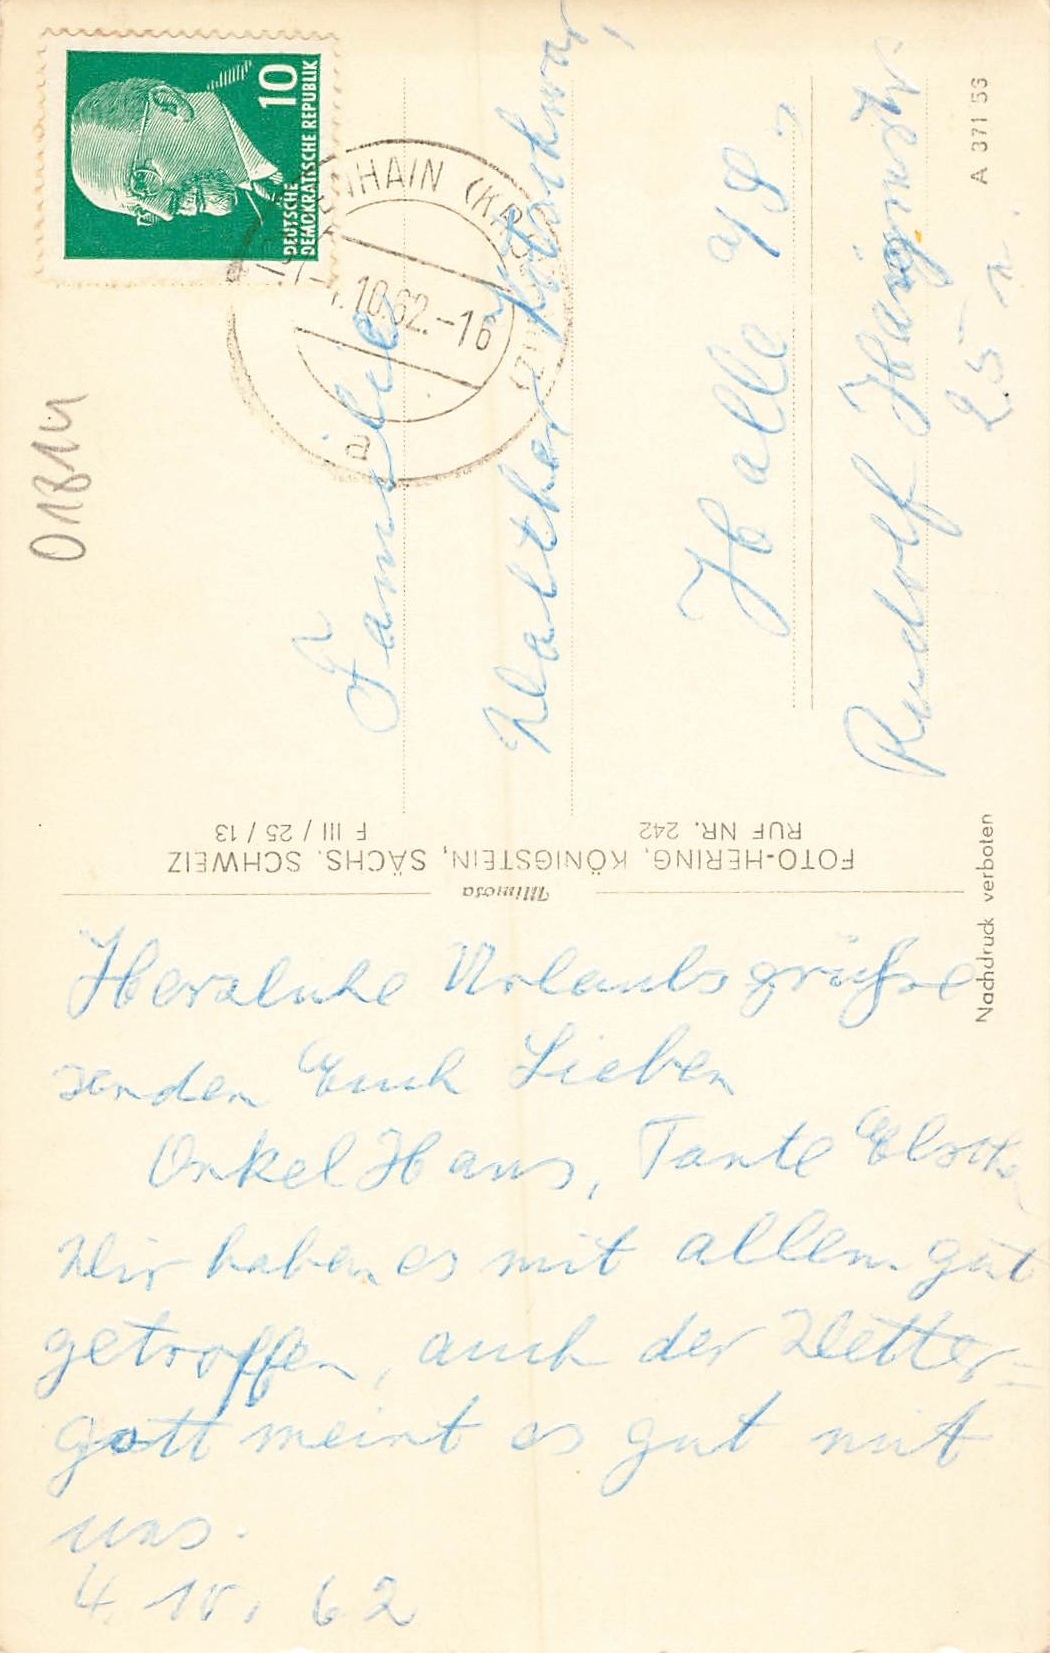 Herzliche Urlaubsgrüße
senden Euch Lieben
Onkel Hans, Tante
Wir haben es mit allem gut
getroffen, auch der Wetter=
gott meint es gut mit
uns.
4. 10. 62
Familie
Walther
Halle a/S,
Rudolf Haym str
25
DEUTSCHE
DEMOKRATISCHE REPUBLIK
10
10.62.-16
a
01814
FOTO-HERING, KÖNIGSTEIN, SÄCHS. SCHWEIZ
RUF NR. 242
F III / 25 / 13
Mimosa
Nachdruck verboten
A 371 53